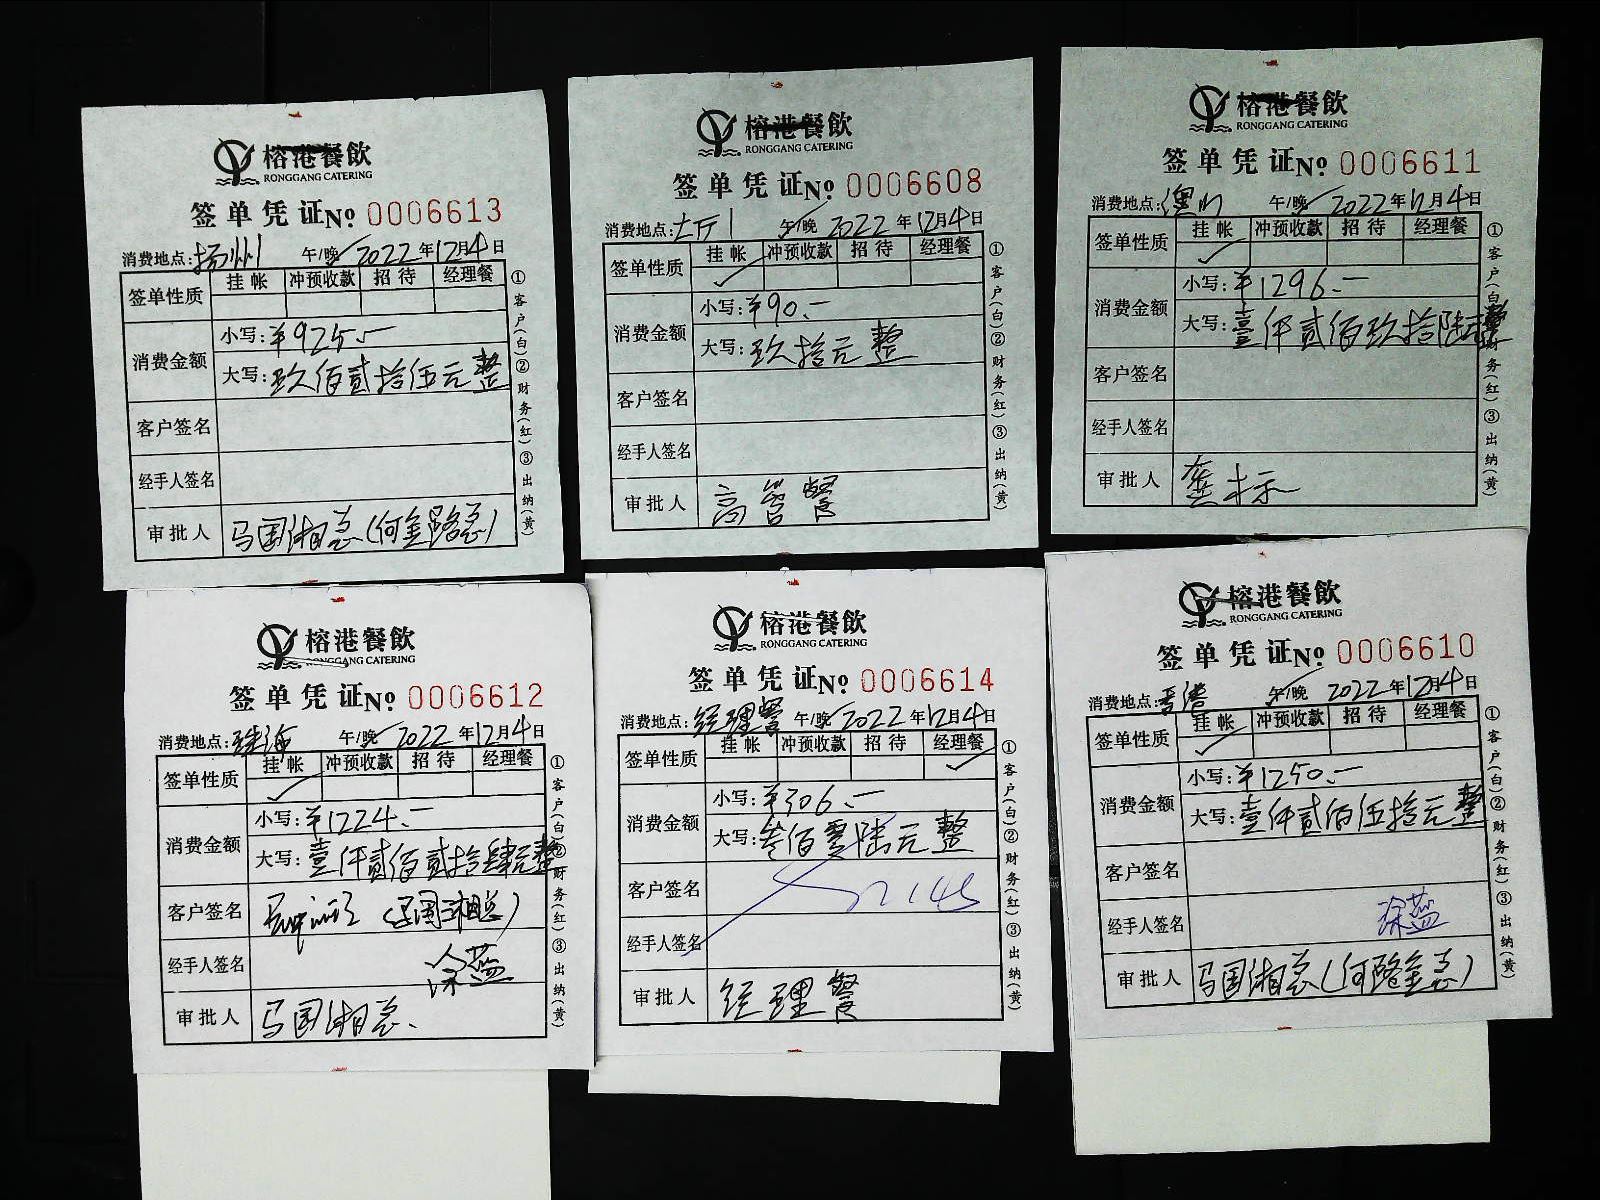 榕港餐飲
RONGGANG CATERING
签单凭证№ 0006613
消费地点:扬州 午/晚 2022年12月4日
签单性质 挂帐 冲预收款 招待 经理餐
消费金额
小写:¥925.-
大写:玖佰贰拾伍元整
客户签名
经手人签名
审批人 马国湘总(何金路总)
①客户(白)②财务(红)③出纳(黄)
榕港餐飲
RONGGANG CATERING
签单凭证№ 0006608
消费地点:大厅1 午/晚 2022年12月4日
签单性质 挂帐 冲预收款 招待 经理餐
消费金额
小写:¥90.-
大写:玖拾元整
客户签名
经手人签名
审批人 高管餐
①客户(白)②财务(红)③出纳(黄)
榕港餐飲
RONGGANG CATERING
签单凭证№ 0006611
消费地点:澳门 午/晚 2022年12月4日
签单性质 挂帐 冲预收款 招待 经理餐
消费金额
小写:¥1296.-
大写:壹仟贰佰玖拾陆元整
客户签名
经手人签名
审批人 龚标
①客户(白)②财务(红)③出纳(黄)
榕港餐飲
RONGGANG CATERING
签单凭证№ 0006612
消费地点:珠海 午/晚 2022年12月4日
签单性质 挂帐 冲预收款 招待 经理餐
消费金额
小写:¥1224.-
大写:壹仟贰佰贰拾肆元整
客户签名 (马国湘总)
经手人签名 涂蕴
审批人 马国湘总.
①客户(白)②财务(红)③出纳(黄)
榕港餐飲
RONGGANG CATERING
签单凭证№ 0006614
消费地点:经理餐 午/晚 2022年12月4日
签单性质 挂帐 冲预收款 招待 经理餐
消费金额
小写:¥306.-
大写:叁佰零陆元整
客户签名
经手人签名
审批人 经理餐
①客户(白)②财务(红)③出纳(黄)
榕港餐飲
RONGGANG CATERING
签单凭证№ 0006610
消费地点:香港 午/晚 2022年12月4日
签单性质 挂帐 冲预收款 招待 经理餐
消费金额
小写:¥1250.-
大写:壹仟贰佰伍拾元整
客户签名
经手人签名 涂蕴
审批人 马国湘总(何路金总)
①客户(白)②财务(红)③出纳(黄)